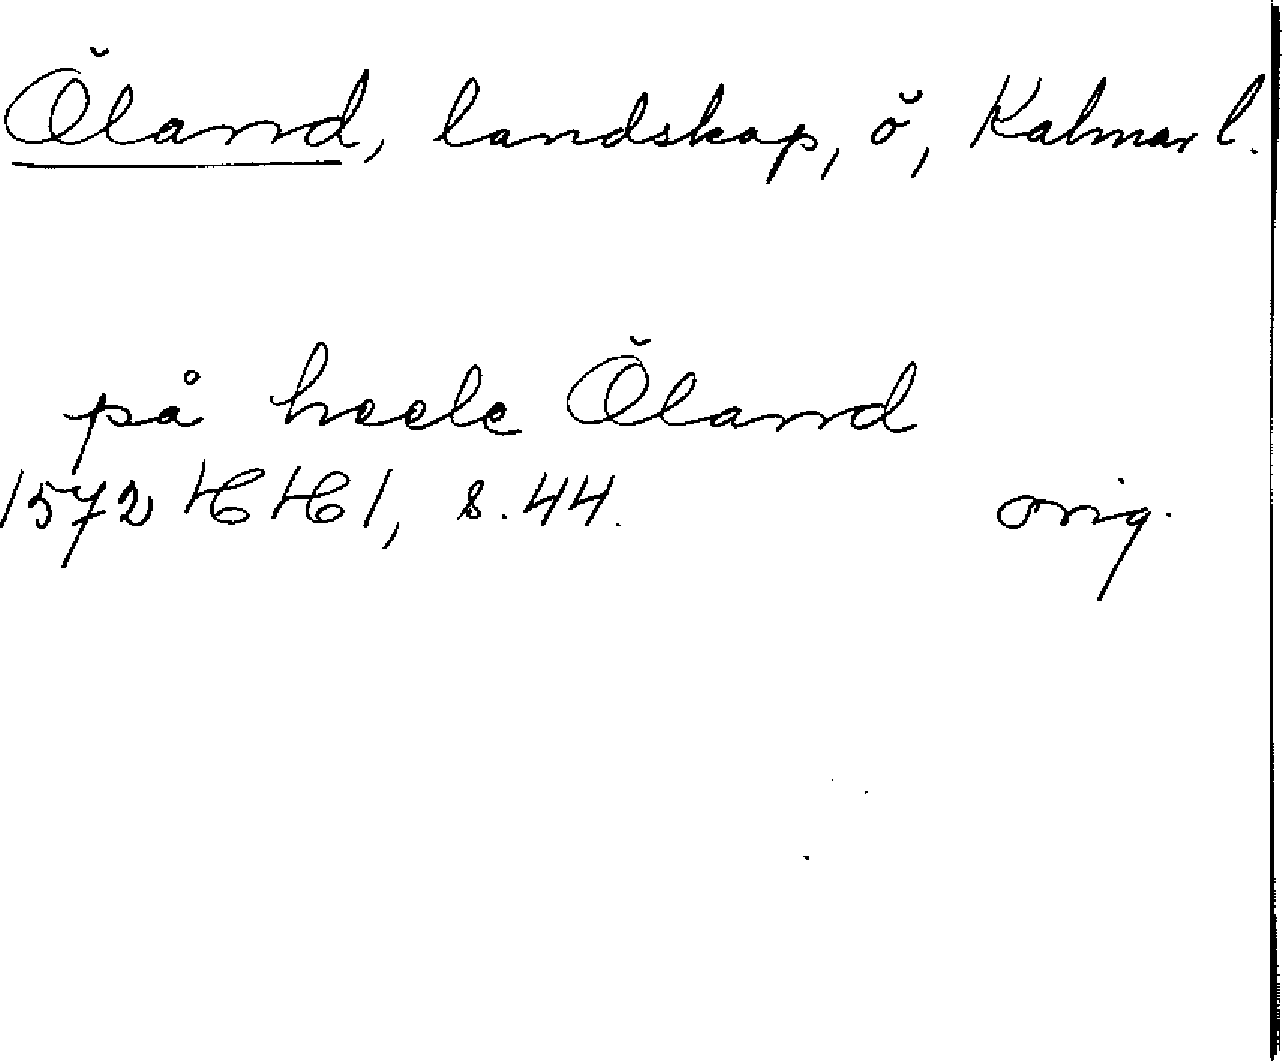 Öland, landskap, ö, Kalmar l.
på heele Öland
1572 HH 1, s. 44. orig.